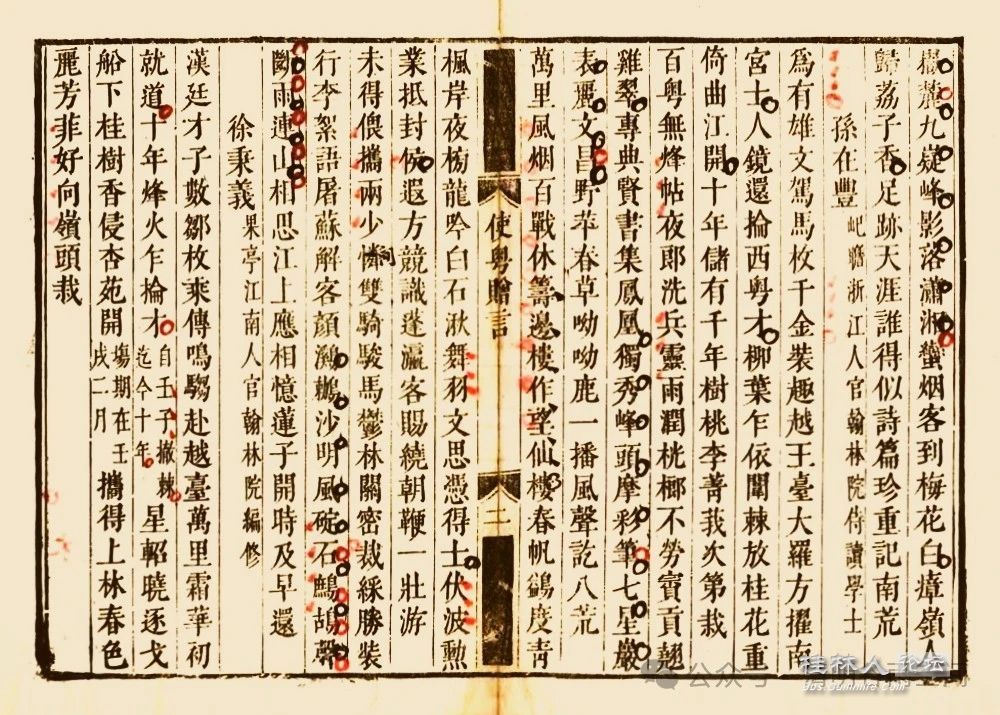 嶽麓九嶷峰影落瀟湘蠻烟客到梅花白瘴嶺人
歸荔子香足跡天涯誰得似詩篇珍重記南荒
孫在豐 屺瞻浙江人官翰林院侍讀學士
爲有雄文駕馬枚千金裝趣越王臺大羅方擢南
宮士人鏡還掄西粤才柳葉乍依闈棘放桂花重
倚曲江開十年儲有千年樹桃李菁莪次第栽
百粤無烽帖夜郎洗兵靈雨潤桄榔不勞賓貢翹
雞翠專典賢書集鳳凰獨秀峰頭摩彩筆七星巖
表麗文昌野苹春草呦呦鹿一播風聲訖八荒
萬里風烟百戰休籌邊樓作望仙樓春帆鷁度青
使粤贈言 二
楓岸夜榜龍吟白石湫舞羽文思憑得士伏波勲
業抵封侯遐方競識蓬瀛客賜繞朝鞭一壯游
未得偎攜兩少憐雙騎駿馬鬱林關密裁綵勝裝
行李絮語屠蘇解客顏鸂鶒沙明風碇石鷓鴣聲
斷雨連山相思江上應相憶蓮子開時及早還
徐秉義 果亭江南人官翰林院編修
漢廷才子數鄒枚乘傳鳴騶赴越臺萬里霜華初
就道十年烽火乍掄才 自壬子撤棘迄今十年 星軺曉逐戈
船下桂樹香侵杏苑開 塲期在壬戌二月 攜得上林春色
麗芳菲好向嶺頭栽
公众号
桂林人论坛